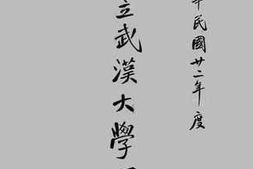 民國廿二年度
立武漢大學